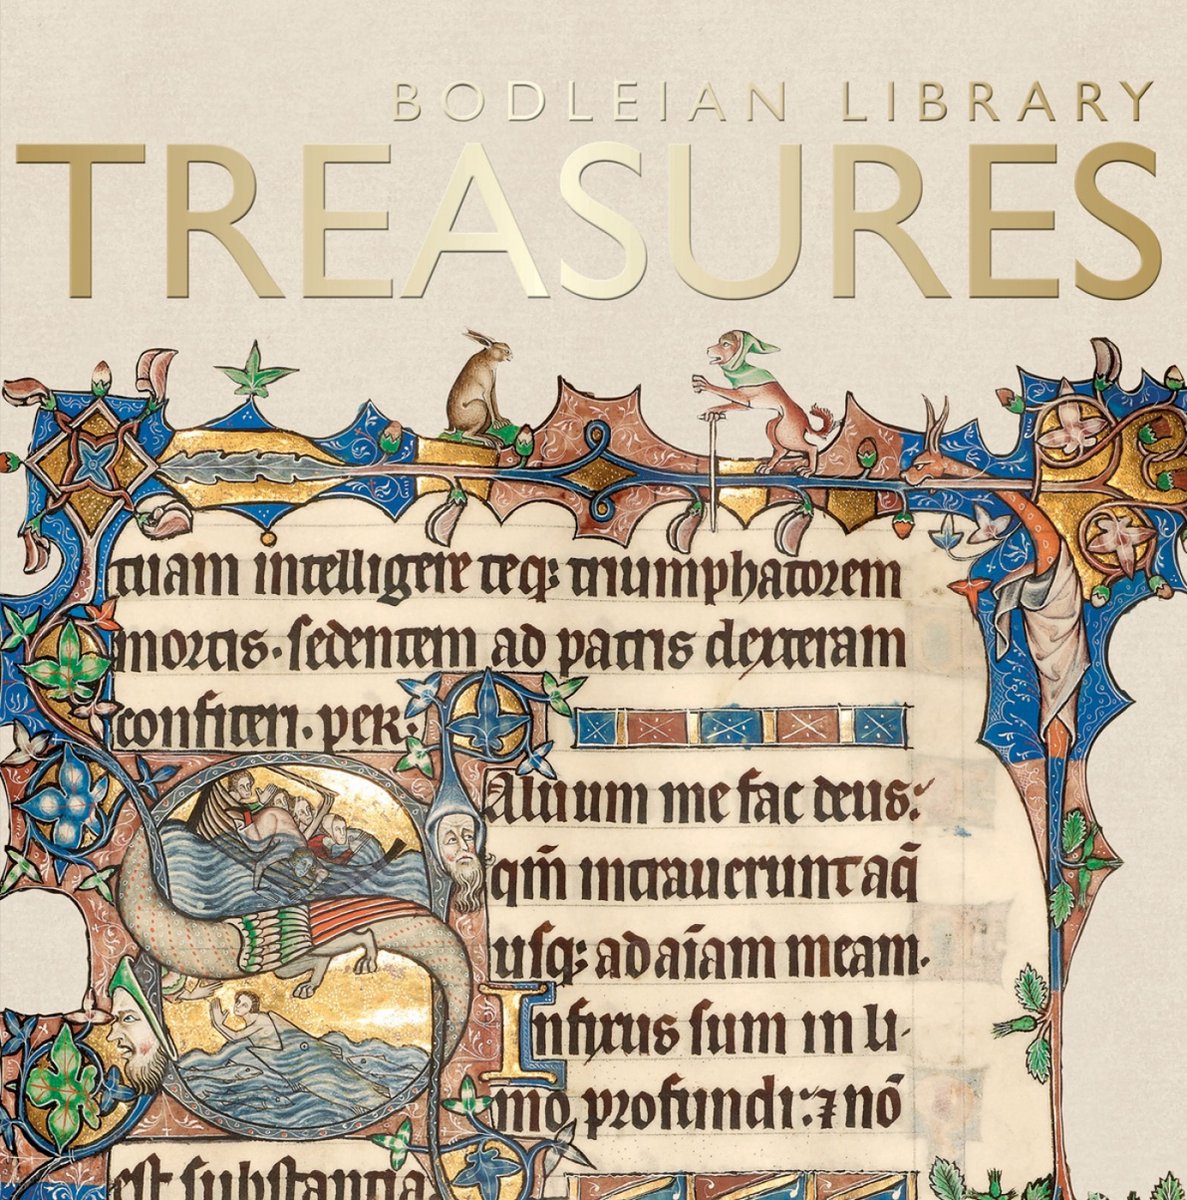 BODLEIAN LIBRARY
TREASURES
tuam intelligere teq; triumphatorem
mortis. sedentem ad patris dexteram
confiteri. per:
Saluum me fac deus:
qm̄ intrauerunt aq̄
usq; ad aīam meam.
Infixus sum in li-
mo profundi: ⁊ nō
est substantia